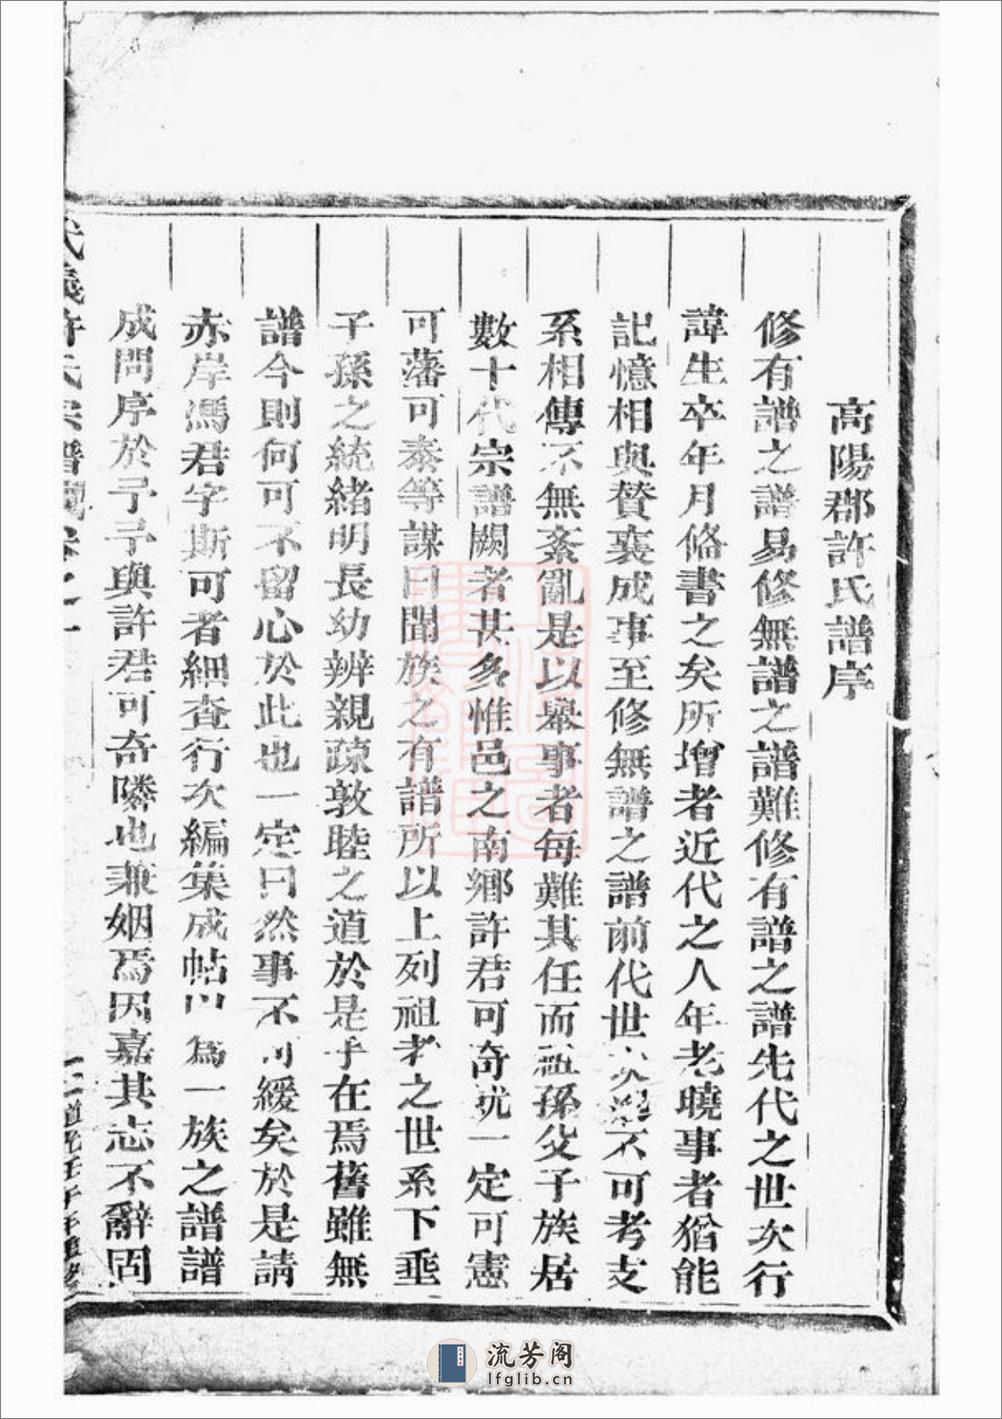 高陽郡許氏譜序
修有譜之譜易修無譜之譜難修有譜之譜先代之世次行
諱生卒年月俻書之矣所增者近代之人年老曉事者猶能
記憶相與賛襄成事至修無譜之譜前代世次不可考支
系相傳不無紊亂是以舉事者每難其任而祖孫父子族居
數十代宗譜闕者甚多惟邑之南鄉許君可奇說一定可憲
可藩可泰等謀曰聞族之有譜所以上列祖考之世系下垂
子孫之統緒明長幼辨親疎敦睦之道於是乎在焉舊雖無
譜今則何可不留心於此也一定曰然事不可緩矣於是請
赤岸馮君字斯可者細查行次編集成帖以為一族之譜譜
成問序於予予與許君可奇隣也兼姻焉因嘉其志不辭固
義許氏宗譜卷之一
道光壬午年重修
流芳阁
lfglib.cn